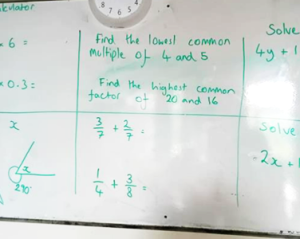 lculator
8 7 6 5
× 6 =
Find the lowest common
multiple of 4 and 5
Solve
4y + 1
× 0.3 =
Find the highest common
factor of 20 and 16
x
3/7 + 2/7 =
Solve
- 2x +
x
290°
1/4 + 3/8 =